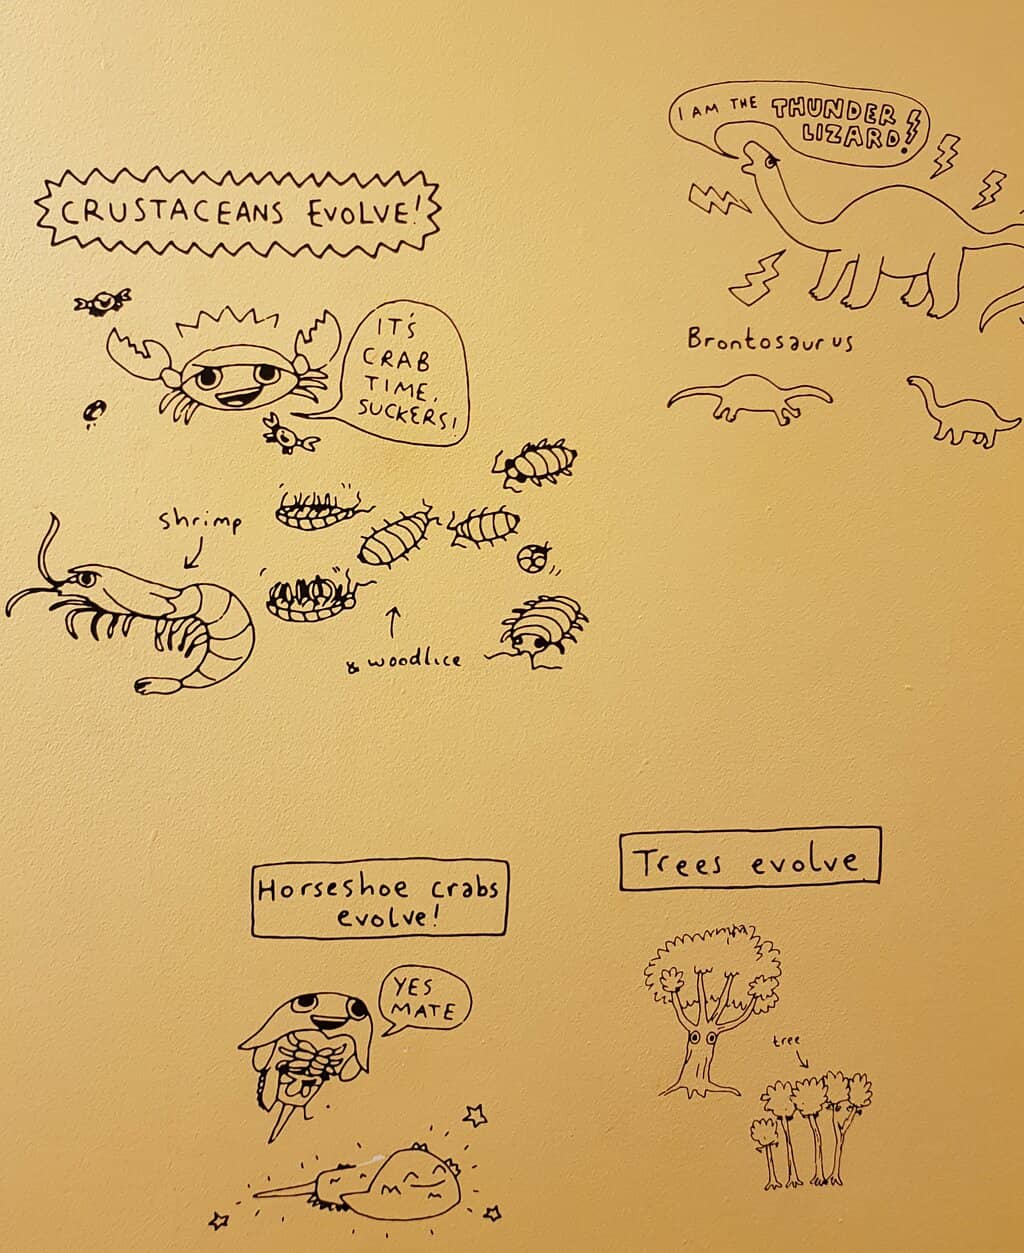 CRUSTACEANS EVOLVE!
IT'S
CRAB
TIME,
SUCKERS!
shrimp
& woodlice
I AM THE THUNDER
LIZARD!
Brontosaurus
Horseshoe crabs
evolve!
YES
MATE
Trees evolve
tree